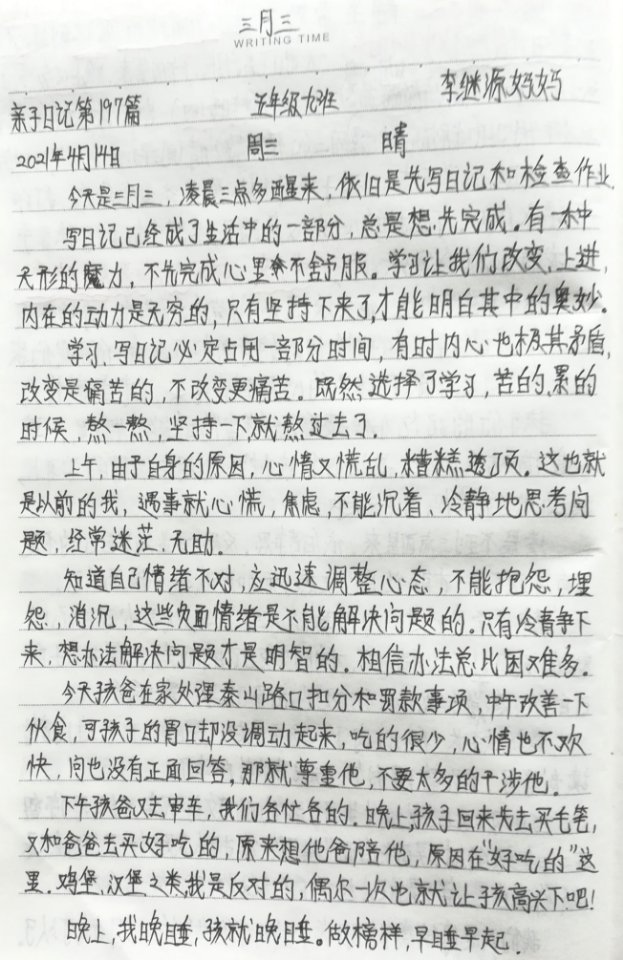 三月三
WRITING TIME
李继源妈妈
亲子日记第197篇 五年级九班
2021年4月14日 周三 晴
今天是三月三，凌晨三点多醒来，依旧是先写日记和检查作业，
写日记已经成了生活中的一部分，总是想先完成。有一种
无形的魔力，不先完成心里不舒服。学习让我们改变、上进，
内在的动力是无穷的，只有坚持下来了，才能明白其中的奥妙。
学习、写日记必定占用一部分时间，有时内心也极其矛盾，
改变是痛苦的，不改变更痛苦。既然选择了学习，苦的、累的
时候，熬一熬，坚持一下，就熬过去了.
上午，由于自身的原因，心情又慌乱，糟糕透顶。这也就
是以前的我，遇事就心慌，焦虑，不能沉着、冷静地思考问
题，经常迷茫、无助.
知道自己情绪不对，应迅速调整心态，不能抱怨，埋
怨，消沉，这些负面情绪是不能解决问题的。只有冷静下
来，想办法解决问题才是明智的。相信办法总比困难多。
今天孩爸在家处理泰山路口扣分和罚款事项，中午改善一下
伙食，可孩子的胃口却没调动起来，吃的很少，心情也不欢
快，问也没有正面回答，那就尊重他，不要太多的干涉他.
下午孩爸又去审车，我们各忙各的. 晚上，孩子回来先去买毛笔，
又和爸爸去买好吃的，原来想他爸陪他，原因在"好吃的"这
里. 鸡堡、汉堡之类，我是反对的，偶尔一次也就让孩高兴下吧！
晚上，我晚睡，孩就晚睡。做榜样，早睡早起.